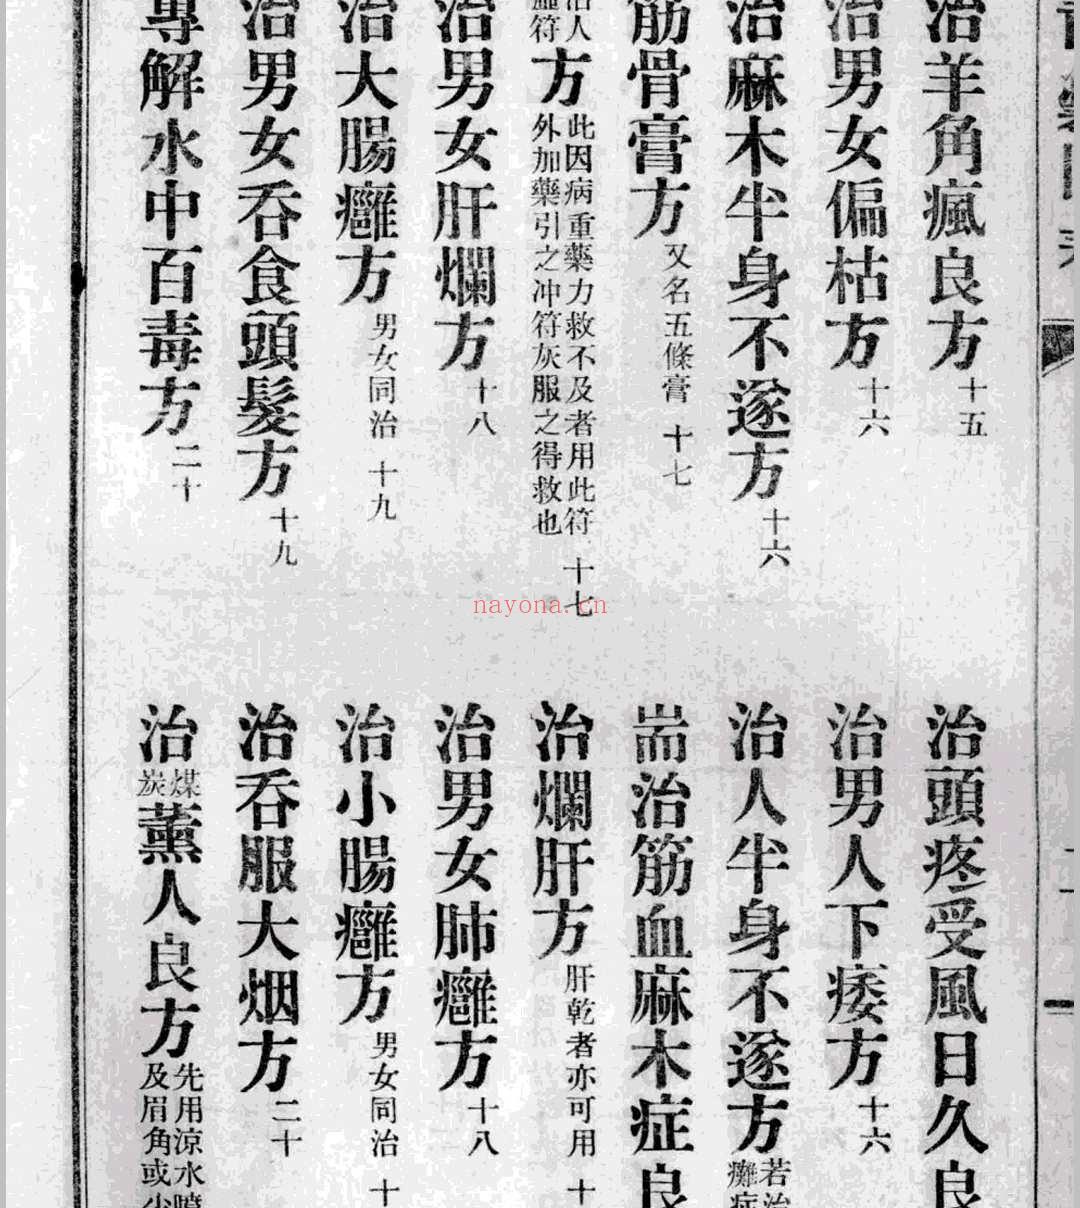 治羊角瘋良方十五
治頭疼受風日久良
治男女偏枯方十六
治男人下痿方十六
治麻木半身不遂方十六
治人半身不遂方若治癱症
筋骨膏方又名五條膏 十七
耑治筋血麻木症良
治人血符方此因病重藥力救不及者用此符外加藥引之冲符灰服之得救也 十七
治爛肝方肝乾者亦可用 十
治男女肝爛方十八
治男女肺癰方十八
治大腸癰方男女同治 十九
治小腸癰方男女同治 十
治男女吞食頭髮方十九
治吞服大烟方二十
專解水中百毒方二十
治煤炭薰人良方先用涼水噴及眉角或少
nayona.cn